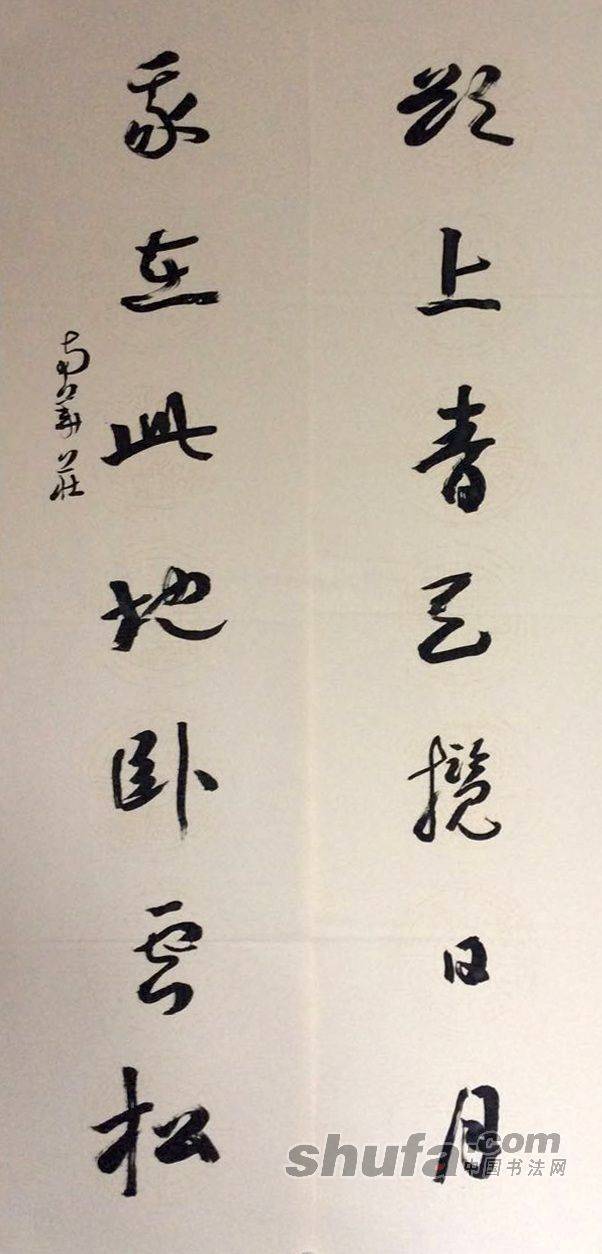 欲上青天攬日月
我在此地卧雲松
南華莊
shufa.com
中国书法网